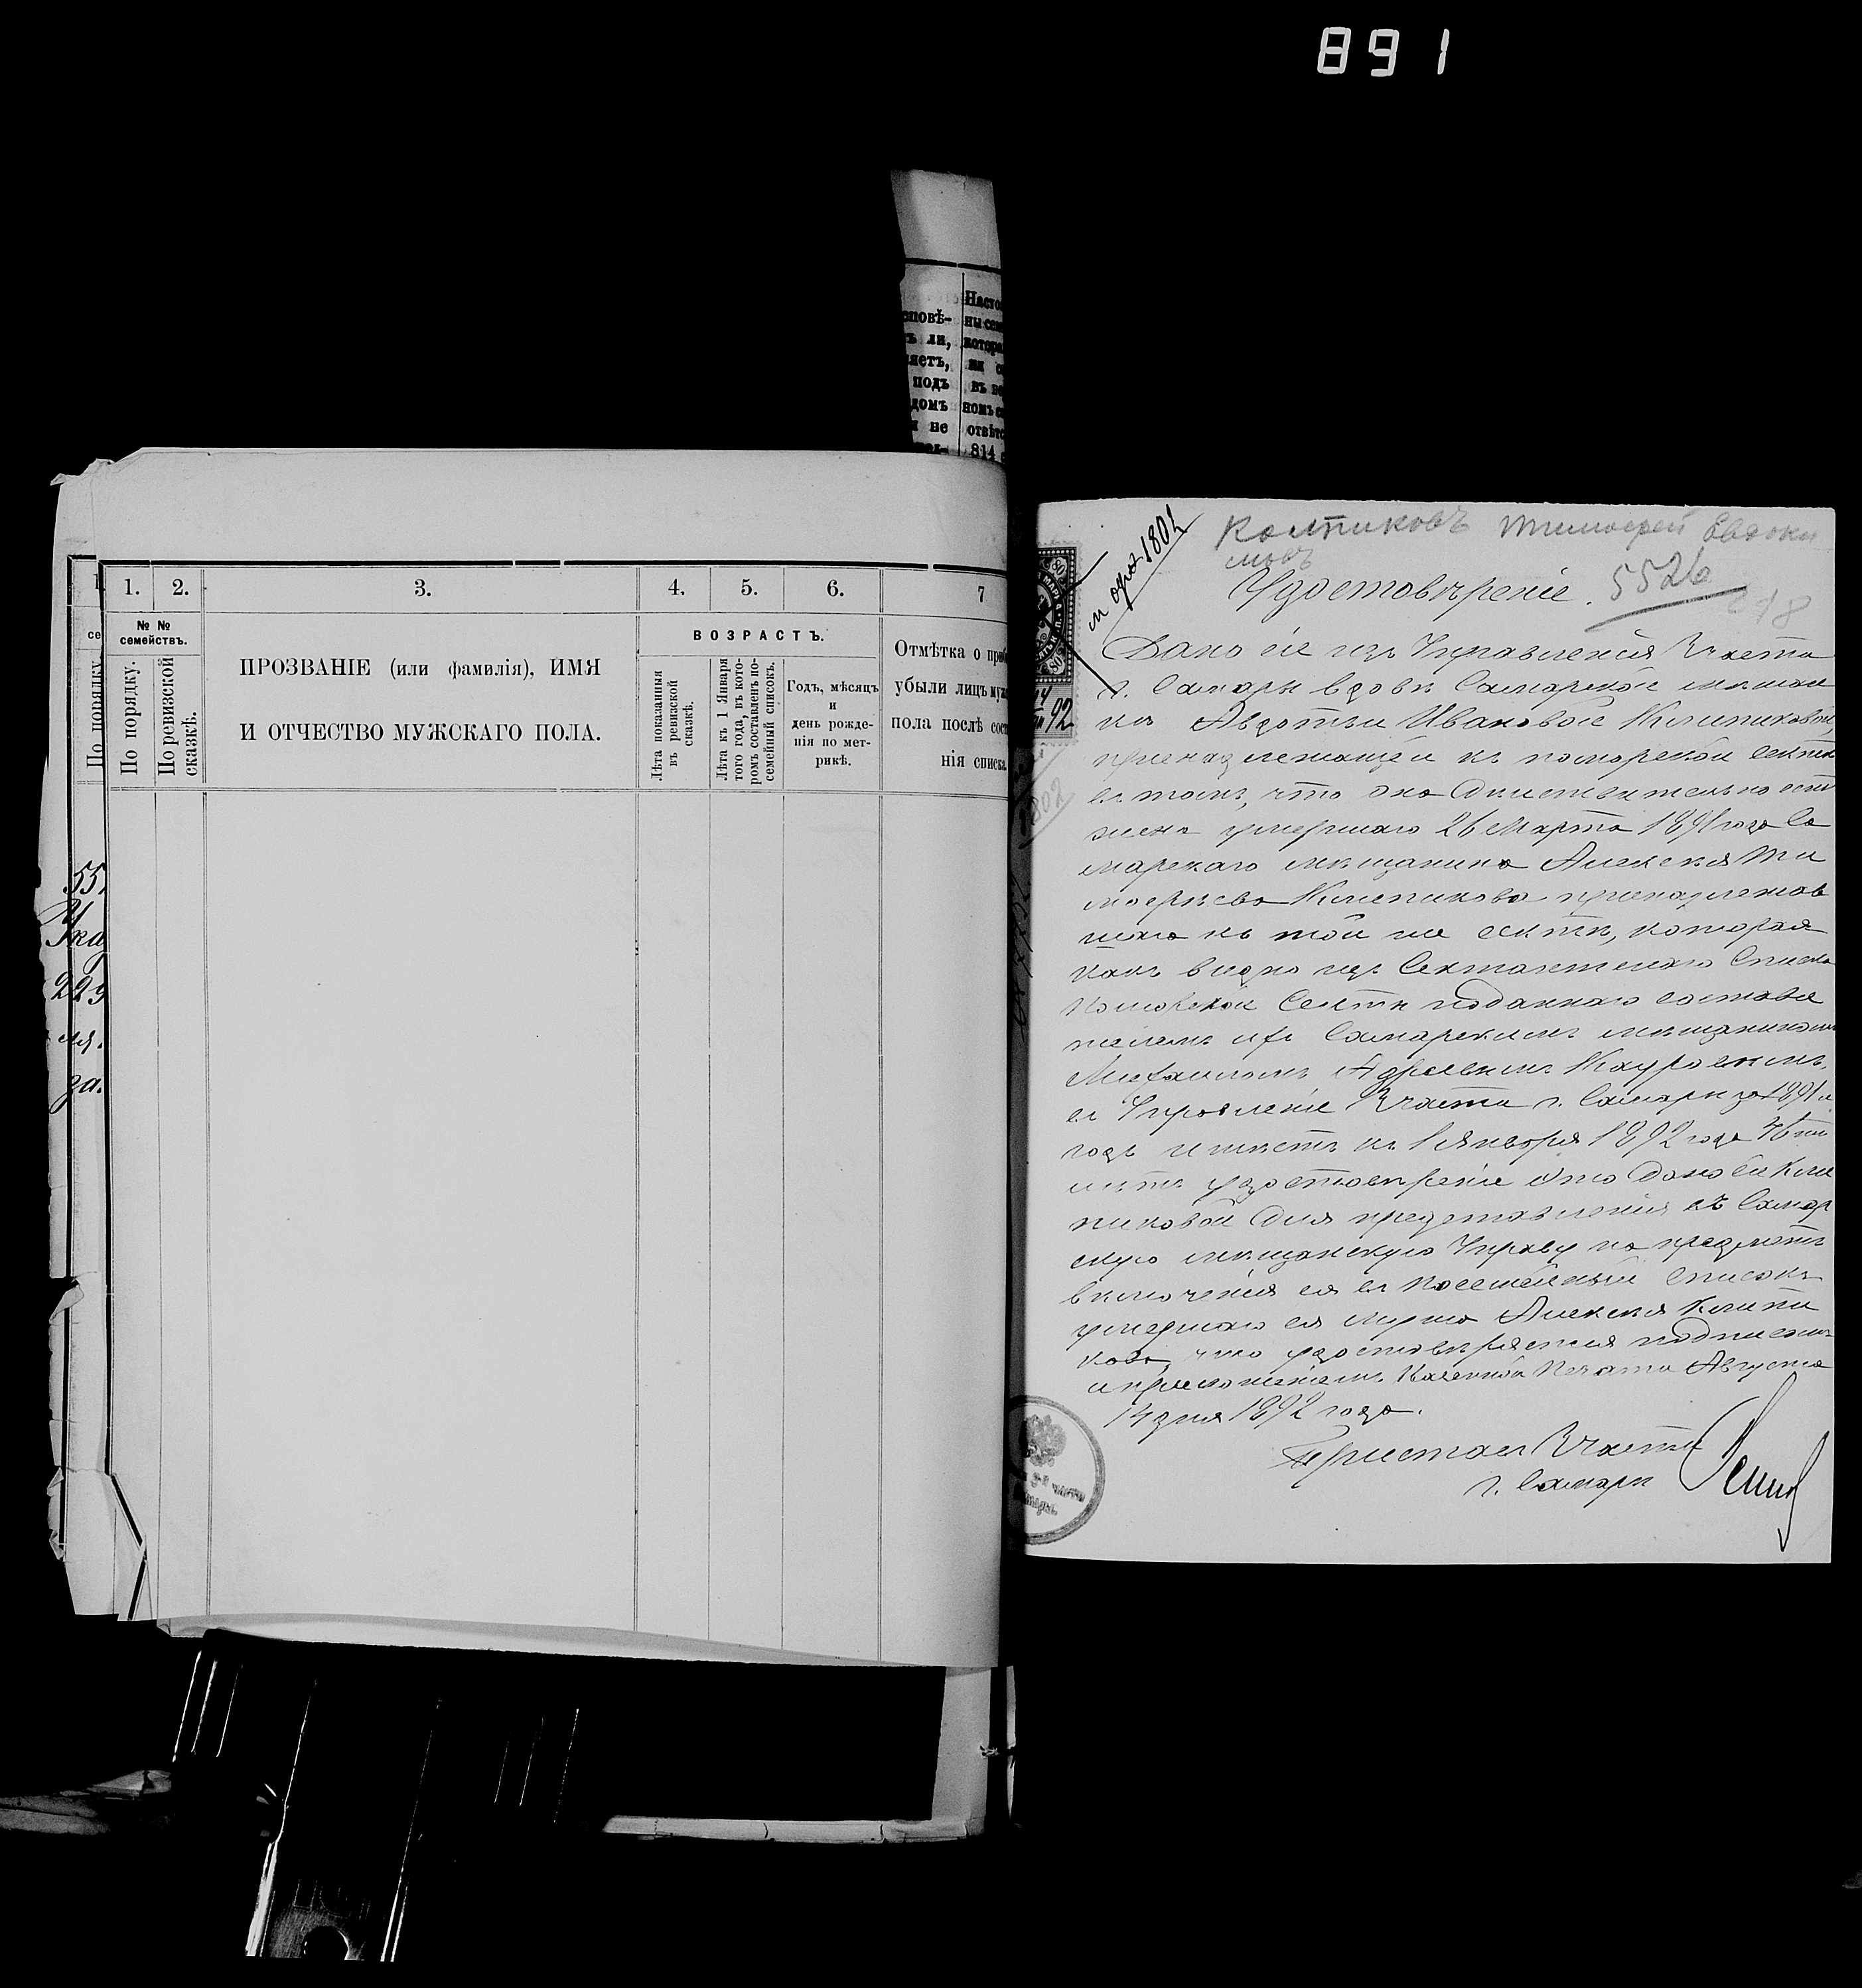 891
сповѣ-
ъ ли,
яетъ,
подъ
домъ
не
Насто
ны сем
котора
ня с
въ не
номъ с
отвѣтс
814
1.
2.
3.
4.
5.
6.
7
№ №
семействъ.
По порядку.
По ревизской
сказкѣ.
ПРОЗВАНІЕ (или фамилія), ИМЯ
И ОТЧЕСТВО МУЖСКАГО ПОЛА.
ВОЗРАСТЪ.
Лѣта показанныя
въ ревизской
сказкѣ.
Лѣта къ 1 Января
того года, въ кото-
ромъ составленъ по-
семейный списокъ.
Годъ, мѣсяцъ
и
день рожде-
нія по мет-
рикѣ.
Отмѣтка о
убыли лицъ муж
пола послѣ сост
нія списка.
се
По порядку
55
Ука
229
ля.
за.
Тимофей Евдоки
мовъ
Удостовѣреніе. 5526
218
Дано сіе изъ Управленія 3 части
г. Самары вдовѣ Самарской мѣщан
кѣ Авдотьи Ивановой Клипиковой,
принадлежащей къ поморской сектѣ
въ томъ, что она дѣйствительно есть
жена умершаго 26 Марта 1891 года Са
марскаго мѣщанина Алексѣя Ти
мофѣева Клипикова принадлежав
шаго къ той же сектѣ, которая
какъ видно изъ Сектантскаго Списка
Поморской Секты поданнаго
Самарскимъ мѣщаниномъ
Михаиломъ
въ Управленіе 3 части г. Самары за 1891 й
годъ имѣетъ къ 1 Января 1892 года
лѣтъ удостовѣреніе это дано ей Кли
пиковой для представленія въ Самар
скую мѣщанскую Управу на предметъ
включенія ея въ посемейный списокъ
умершаго ея мужа Алексѣя Клипи
кова, что удостовѣряется подписомъ
и приложеніемъ Казенной Печати Августа
14 дня 1892 года.
Приставъ 3 части
г. Самары
80
92